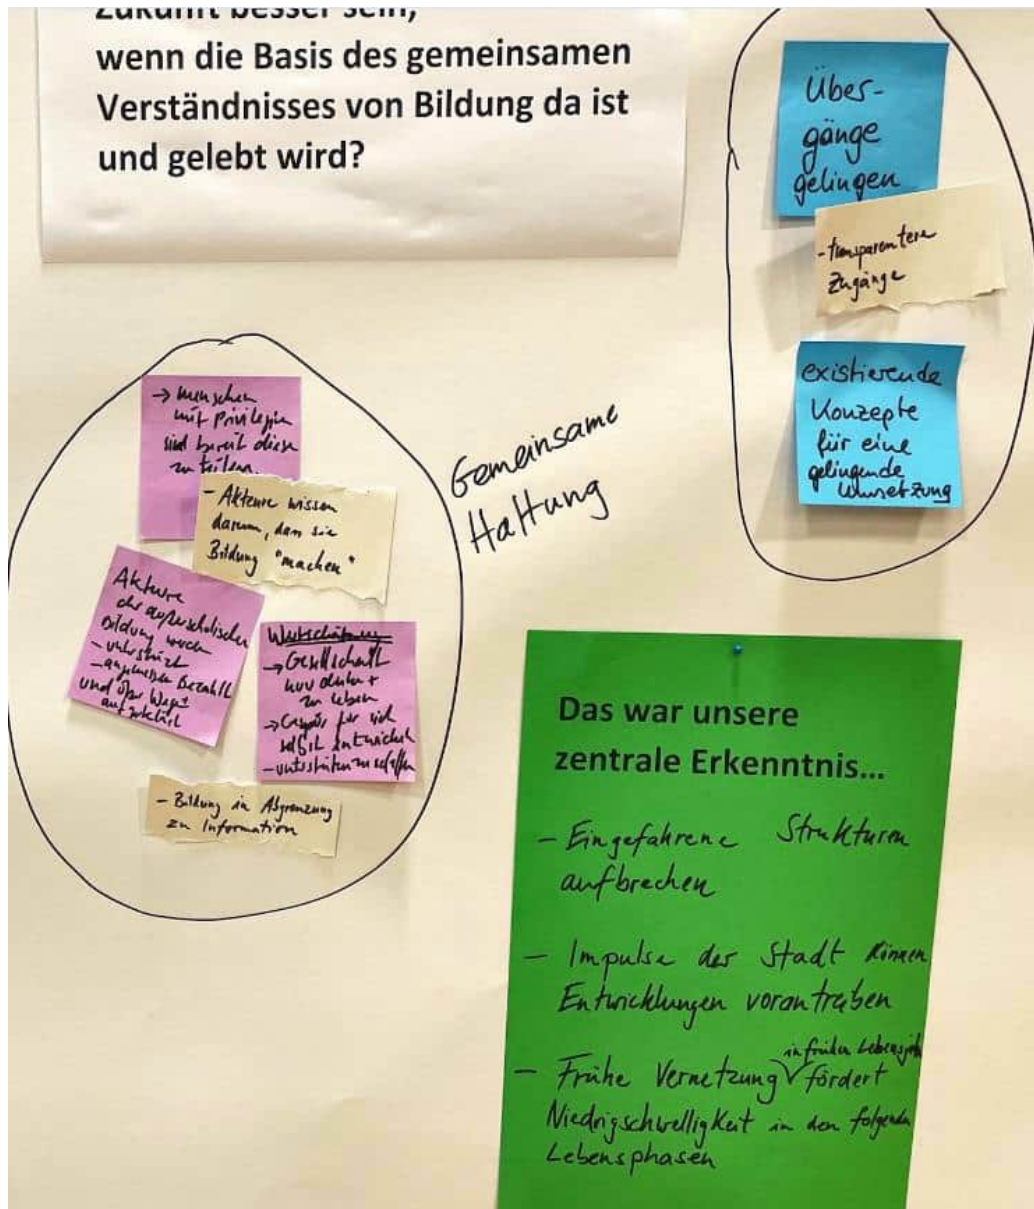 Zukunft besser sein,
wenn die Basis des gemeinsamen
Verständnisses von Bildung da ist
und gelebt wird?
Über-
gänge
gelingen
- transparentere
Zugänge
existierende
Konzepte
für eine
gelingende
Umsetzung
Gemeinsame
Haltung
→ Menschen
mit Privilegien
sind bereit diese
zu teilen
- Akteure wissen
darum, dass sie
Bildung "machen"
Akteure
der außerschulischen
Bildung werden
- unterstützt
- angemessen bezahlt
und über Wege
aufgeklärt
Wertschätzung
→ Gesellschaft
zu leben
→ Gespür für sich
selbst entwickeln
- Bildung in Abgrenzung
zu Information
Das war unsere
zentrale Erkenntnis...
- Eingefahrene Strukturen
aufbrechen
- Impulse der Stadt können
Entwicklungen vorantreiben
in frühen Lebensjah
- Frühe Vernetzung fördert
Niedrigschwelligkeit in den folgenden
Lebensphasen